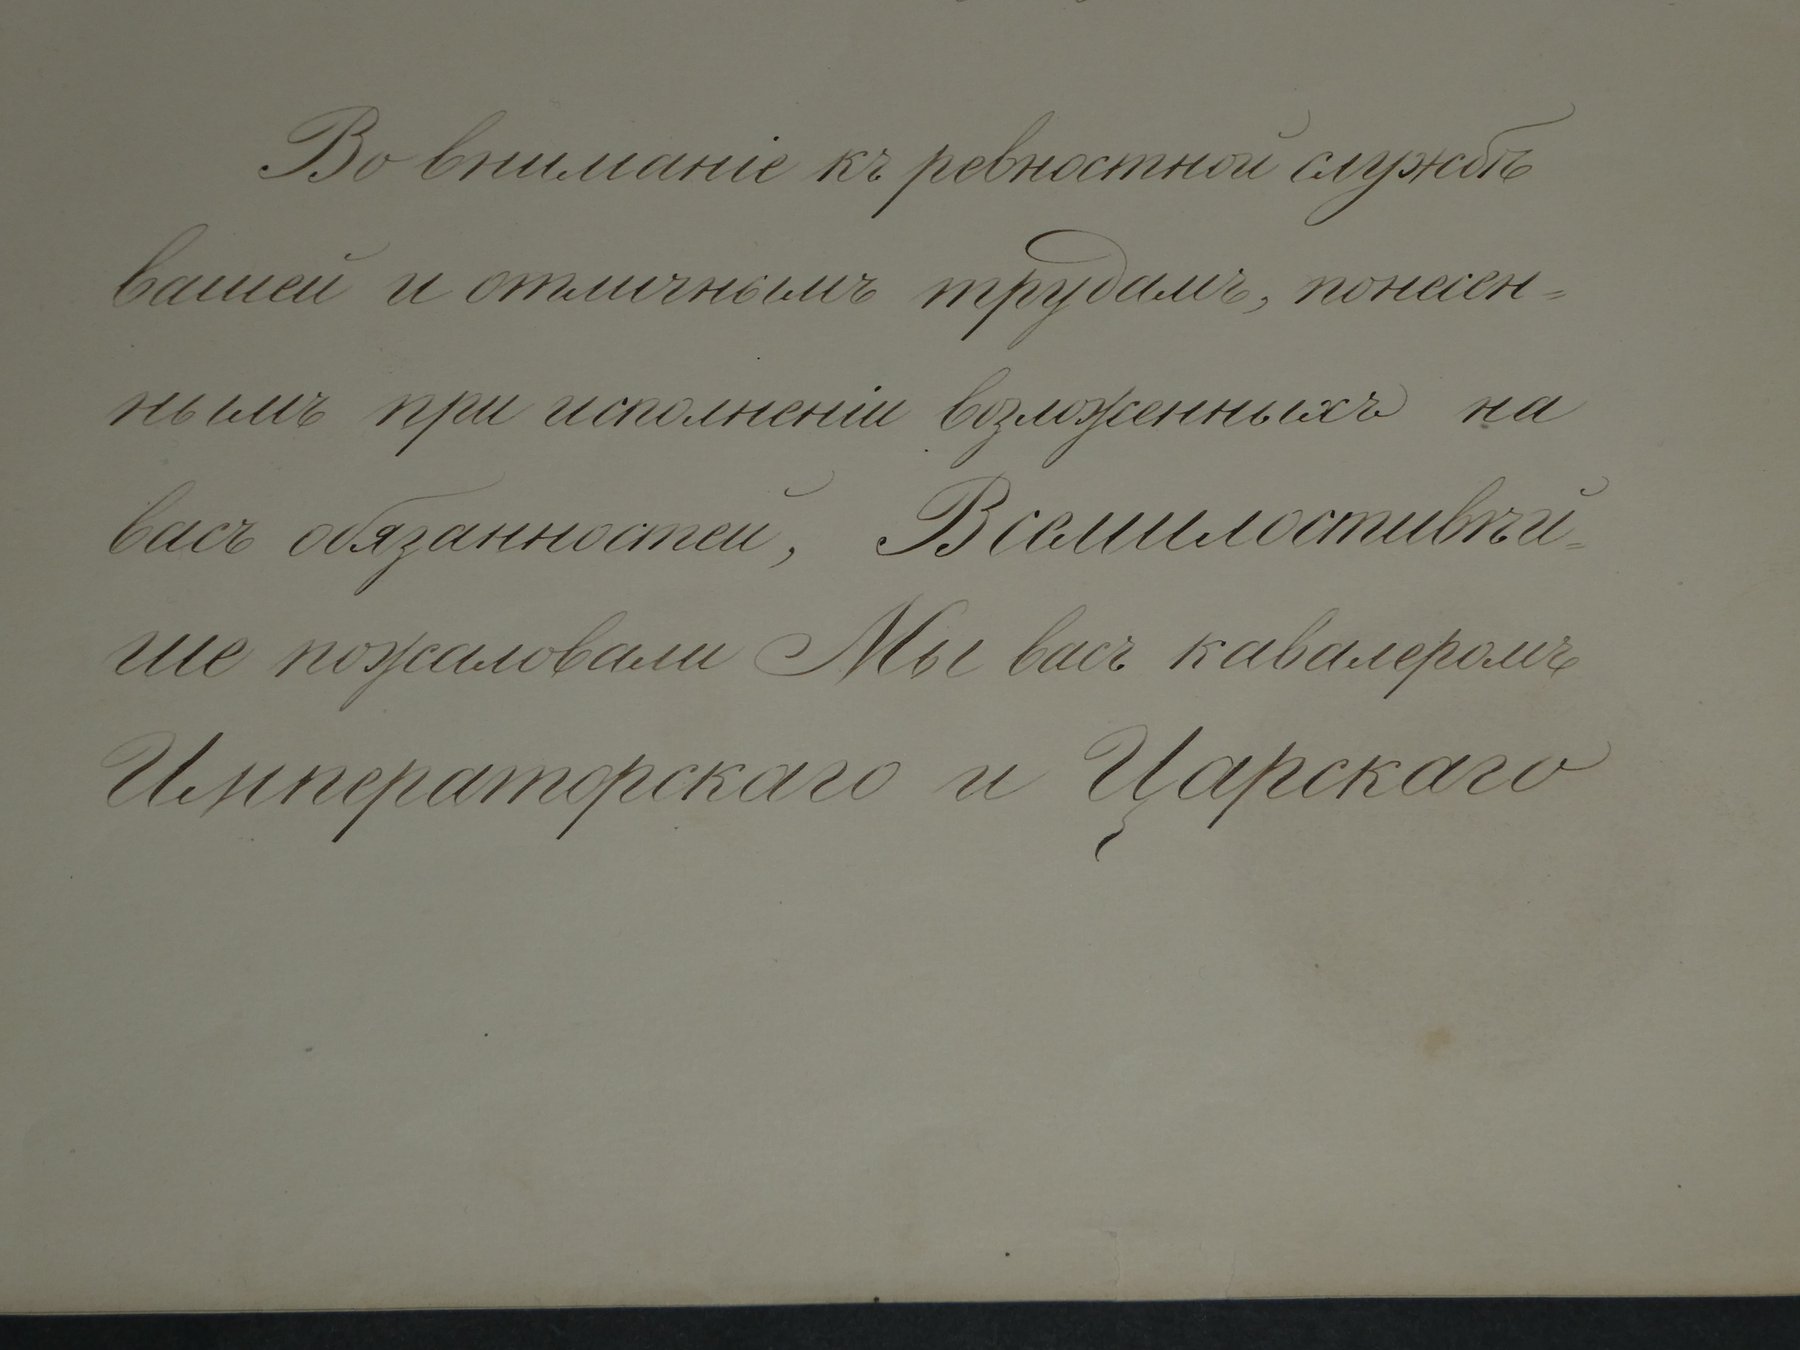 Во вниманіе къ ревностной службѣ
вашей и отличнымъ трудамъ, понесен=
нымъ при исполненіи возложенныхъ на
васъ обязанностей, Всемилостивѣй=
ше пожаловали Мы васъ кавалеромъ
Императорскаго и Царскаго